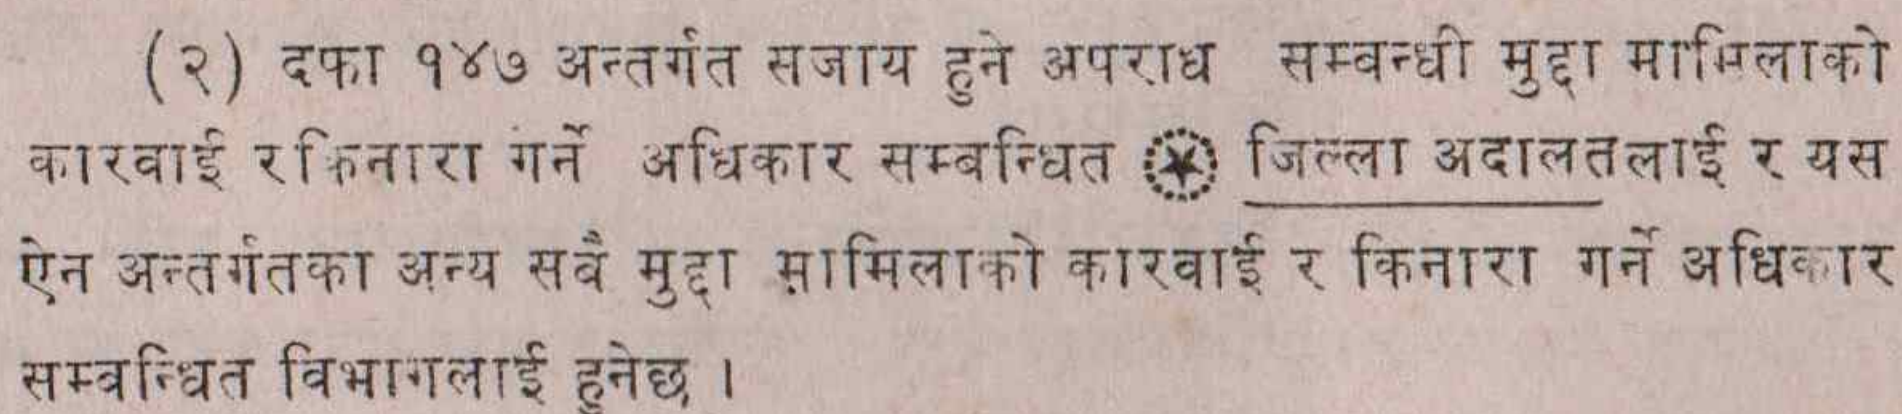 (२) दफा १४७ अन्तर्गत सजाय हुने अपराध सम्वन्धी मुद्दा मामिलाको
कारवाई र किनारा गर्ने अधिकार सम्वन्धित जिल्ला अदालतलाई र यस
ऐन अन्तर्गतका अन्य सवै मुद्दा मामिलाको कारवाई र किनारा गर्ने अधिकार
सम्वन्धित विभागलाई हुनेछ ।